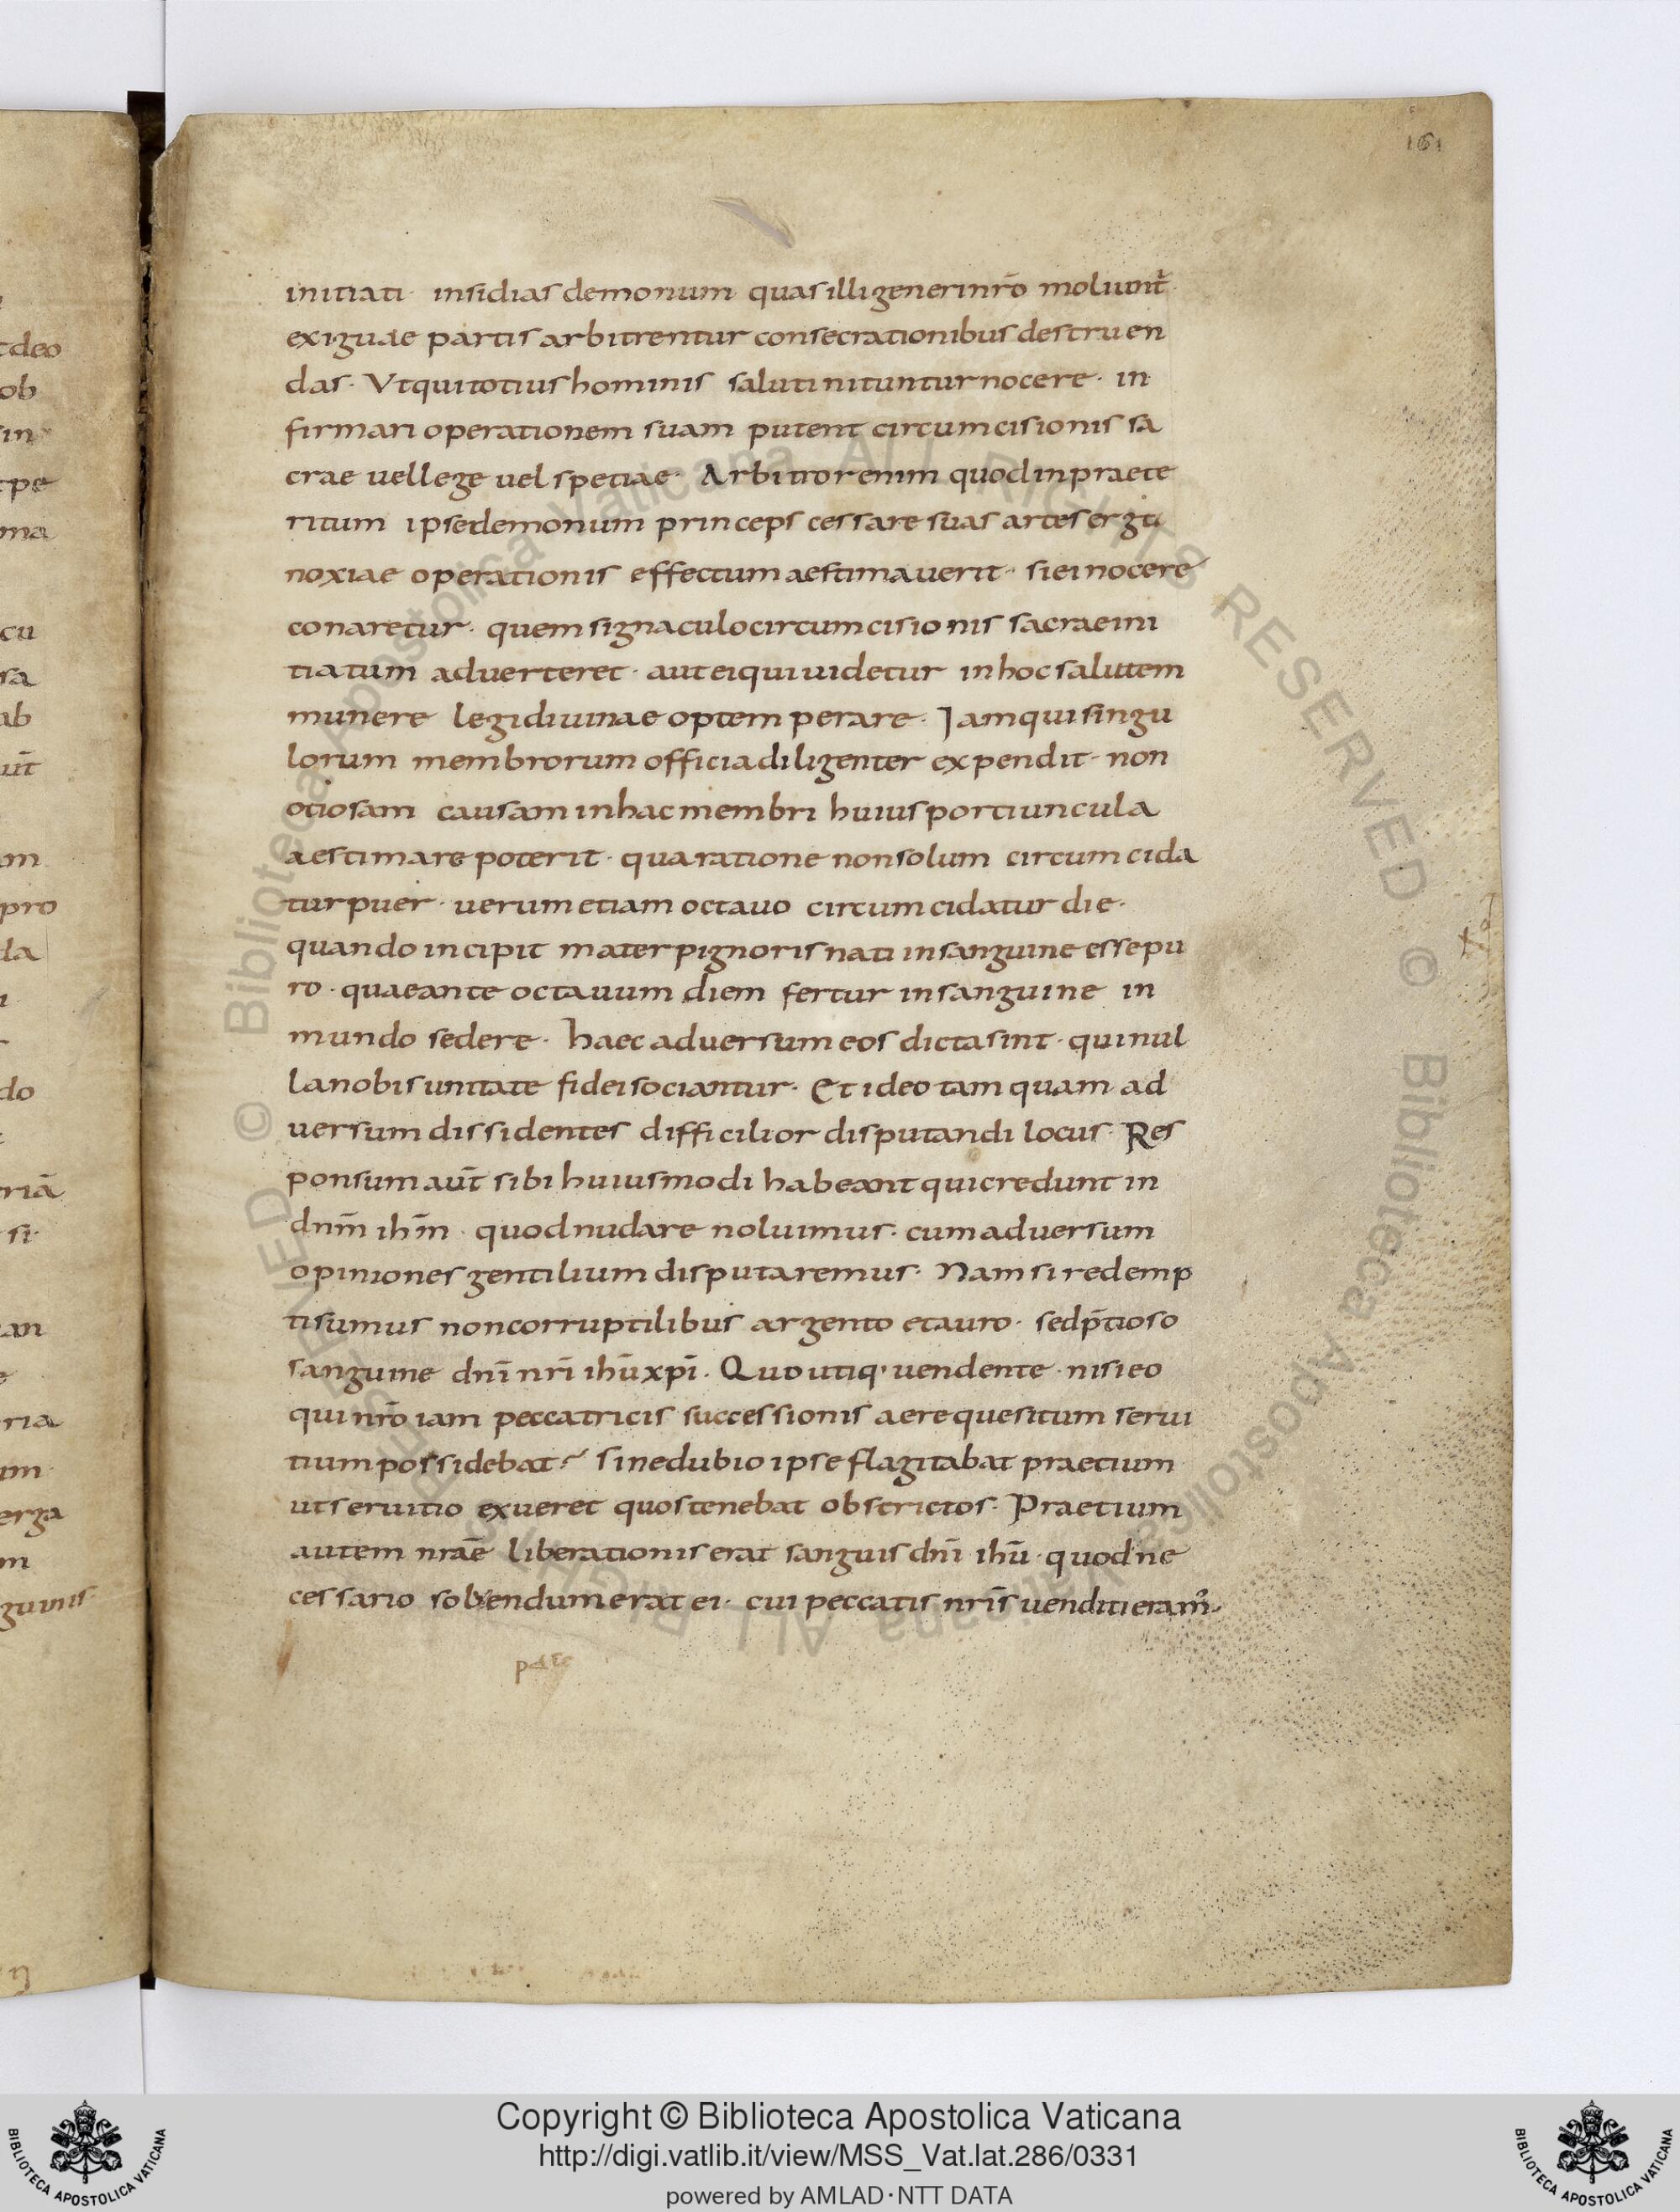 161
initiati· insidias demonum quas illi generi nr̄o moliunt̄
exiguae partis arbitrentur consecrationibus destruen
das· Vt qui totius hominis saluti nituntur nocere· in
firmari operationem suam putent circumcisionis sa
crae uel lege uel spetiae· Arbitror enim quod in praete
ritum ipse demonum princeps cessare suas artes erga
noxiae operationis effectum aestimauerit· si ei nocere
conaretur· quem signaculo circumcisionis sacrae ini
tiatum aduerteret· aut ei qui uidetur in hoc salutem
munere legi diuinae optemperare· Iam qui singu
lorum membrorum officia diligenter expendit· non
otiosam causam in hac membri huius portiuncula
aestimare poterit· qua ratione non solum circumcida
tur puer· uerum etiam octauo circumcidatur die·
quando incipit mater pignoris nati in sanguine esse pu
ro· quae ante octauum diem fertur in sanguine in
mundo sedere· haec aduersum eos dicta sint· qui nul
la nobis unitate fidei sociantur· Et ideo tamquam ad
uersum dissidentes difficilior disputandi locus· Res
ponsum aut̄ sibi huiusmodi habeant qui credunt in
dnm̄ ihm̄· quod nudare noluimus· cum aduersum
opiniones gentilium disputaremus· Nam si redemp
ti sumus non corruptilibus argento et auro· sed p̄tioso
sanguine dnī nrī ihū xpī· Quo utiq· uendente· nisi eo
qui nr̄o iam peccatricis successionis aere quesitum serui
tium possidebat? sine dubio ipse flagitabat praetium
ut seruitio exueret quos tenebat obstrictos· Praetium
autem nrāe liberationis erat sanguis dnī ihū· quod ne
cessario soluendum erat ei· cui peccatis nrīs uenditi eram᾽·
Copyright © Biblioteca Apostolica Vaticana
http://digi.vatlib.it/view/MSS_Vat.lat.286/0331
powered by AMLAD·NTT DATA